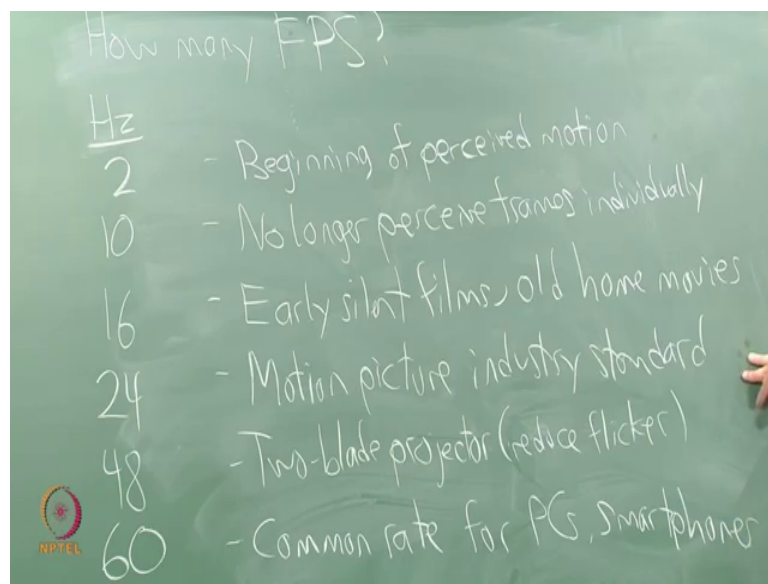 How many FPS?
Hz
2 - Beginning of perceived motion
10 - No longer perceive frames individually
16 - Early silent films, old home movies
24 - Motion picture industry standard
48 - Two-blade projector (reduce flicker)
60 - Common rate for PCs, smartphones
NPTEL